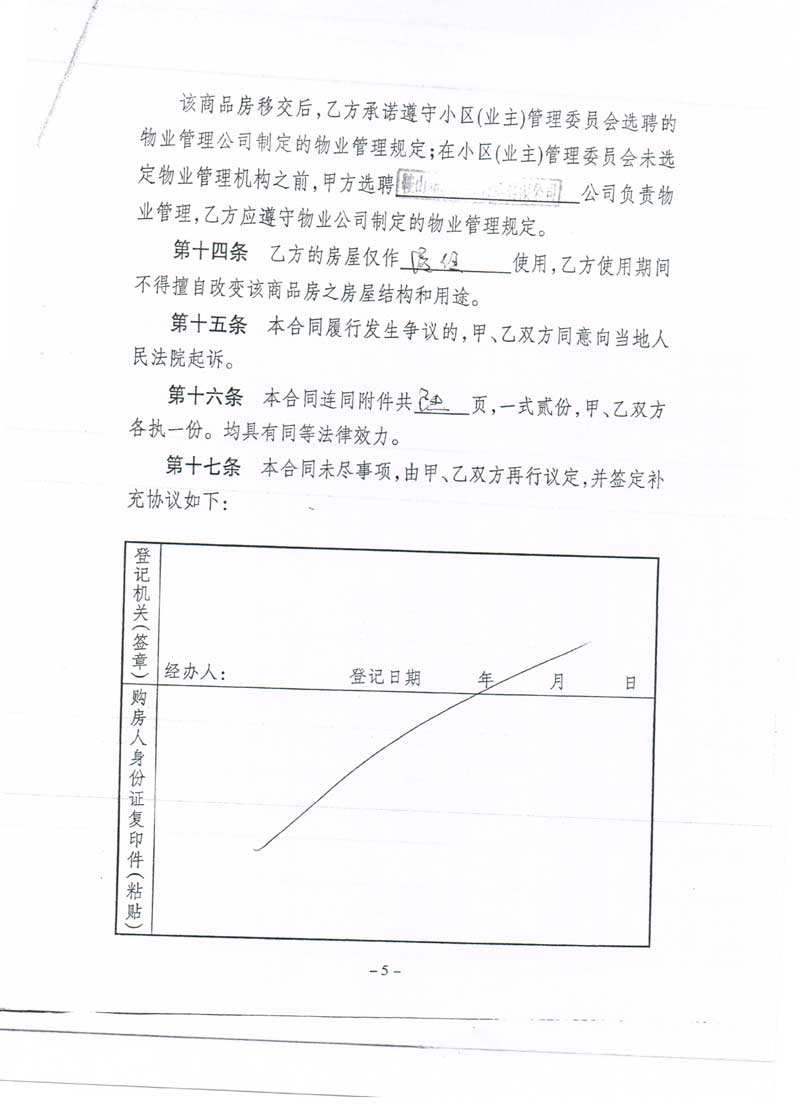 该商品房移交后,乙方承诺遵守小区(业主)管理委员会选聘的
物业管理公司制定的物业管理规定;在小区(业主)管理委员会未选
定物业管理机构之前,甲方选聘 公司负责物
业管理,乙方应遵守物业公司制定的物业管理规定。
第十四条 乙方的房屋仅作 居住 使用,乙方使用期间
不得擅自改变该商品房之房屋结构和用途。
第十五条 本合同履行发生争议的,甲、乙双方同意向当地人
民法院起诉。
第十六条 本合同连同附件共 页,一式贰份,甲、乙双方
各执一份。均具有同等法律效力。
第十七条 本合同未尽事项,由甲、乙双方再行议定,并签定补
充协议如下:
登记机关(签章)
经办人: 登记日期 年 月 日
购房人身份证复印件(粘贴)
-5-